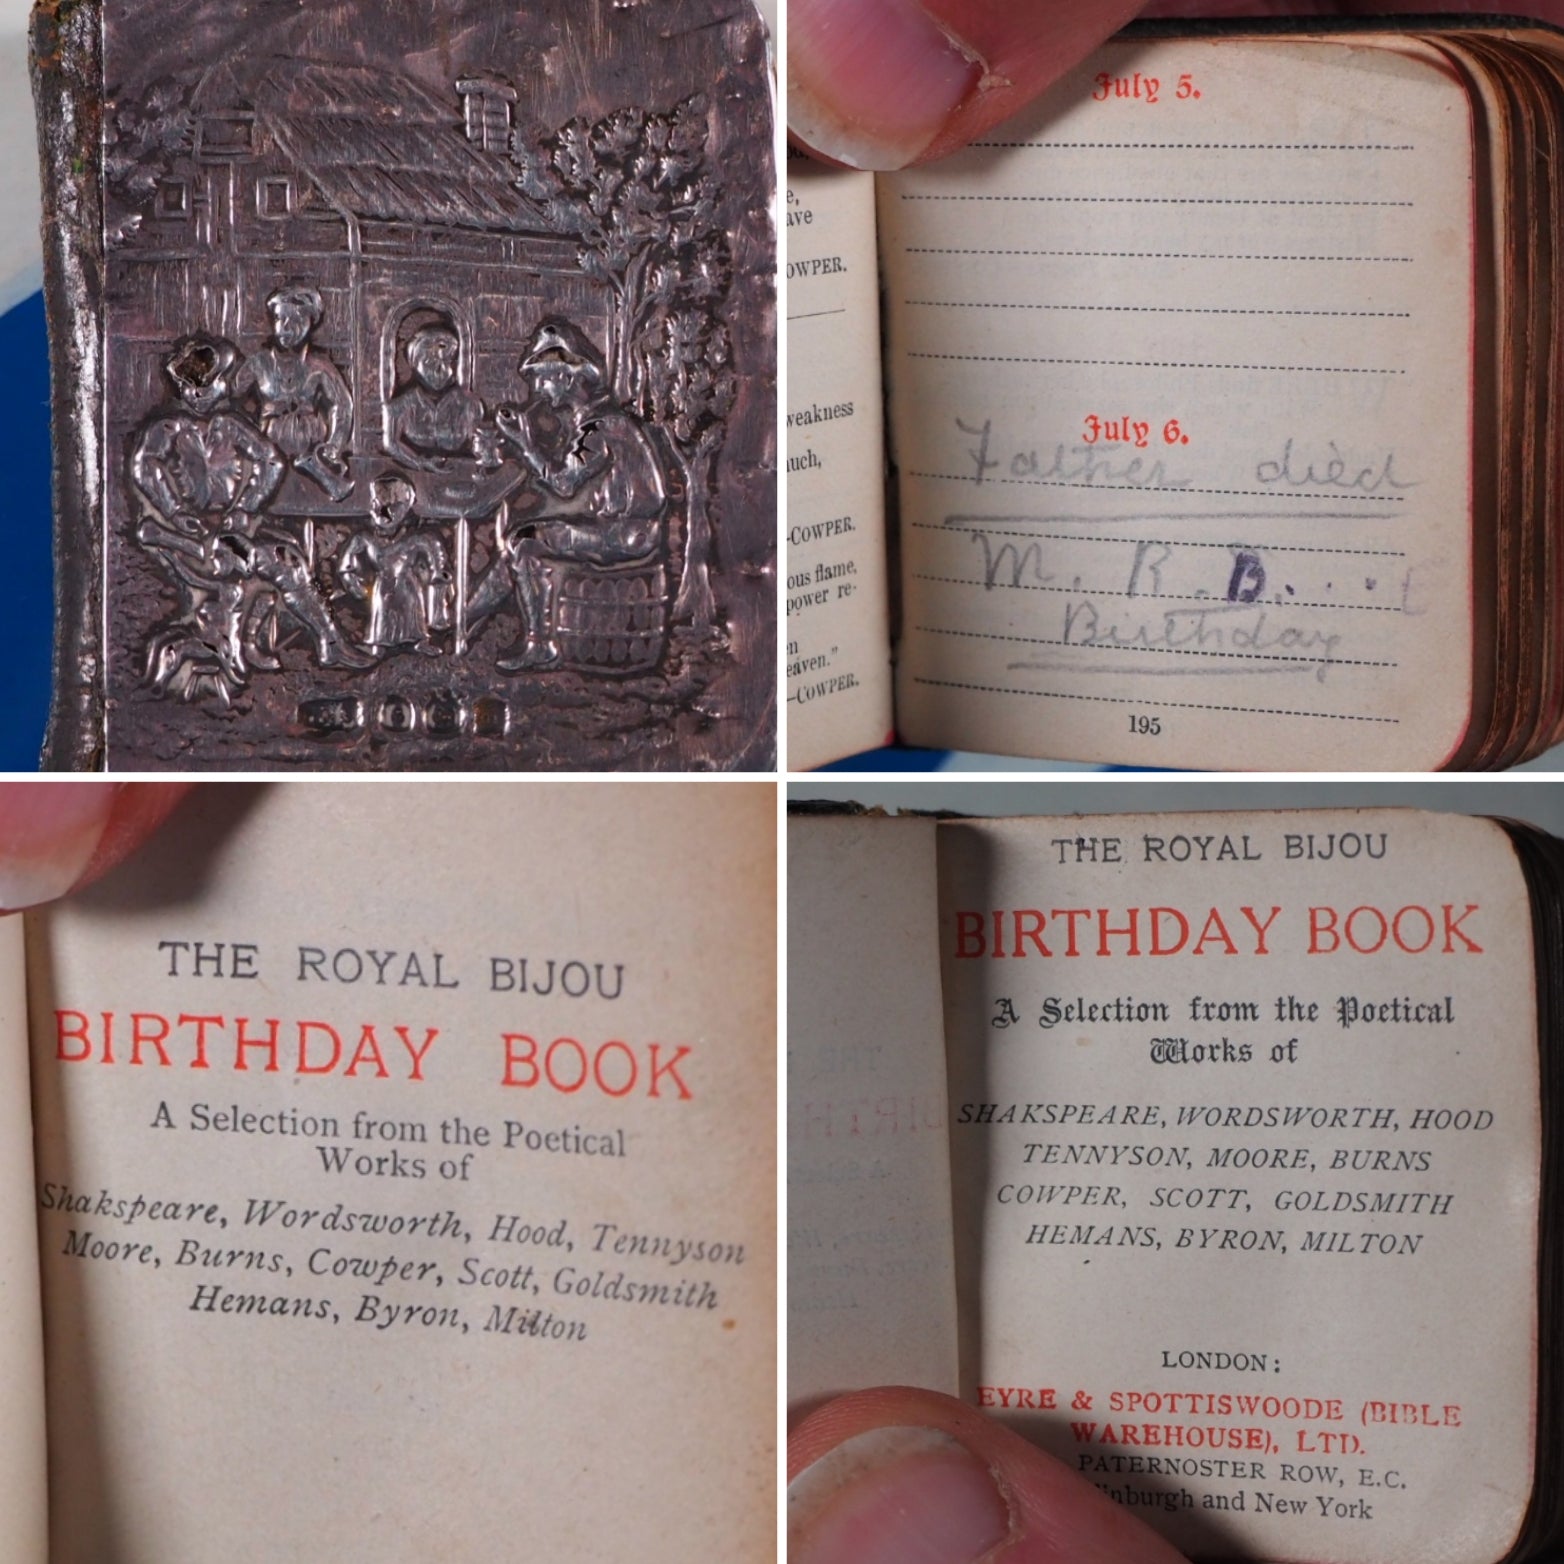 July 5.
ave
COWPER.
weakness
July 6.
Father died
-COWPER.
ous flame,
power re-
M. R. B. . . .
Birthday
eaven."
-COWPER.
195
THE ROYAL BIJOU
BIRTHDAY BOOK
A Selection from the Poetical
Works of
Shakspeare, Wordsworth, Hood, Tennyson
Moore, Burns, Cowper, Scott, Goldsmith
Hemans, Byron, Milton
THE ROYAL BIJOU
BIRTHDAY BOOK
A Selection from the Poetical
Works of
SHAKSPEARE, WORDSWORTH, HOOD
TENNYSON, MOORE, BURNS
COWPER, SCOTT, GOLDSMITH
HEMANS, BYRON, MILTON
LONDON:
EYRE & SPOTTISWOODE (BIBLE
WAREHOUSE), LTD.
PATERNOSTER ROW, E.C.
inburgh and New York